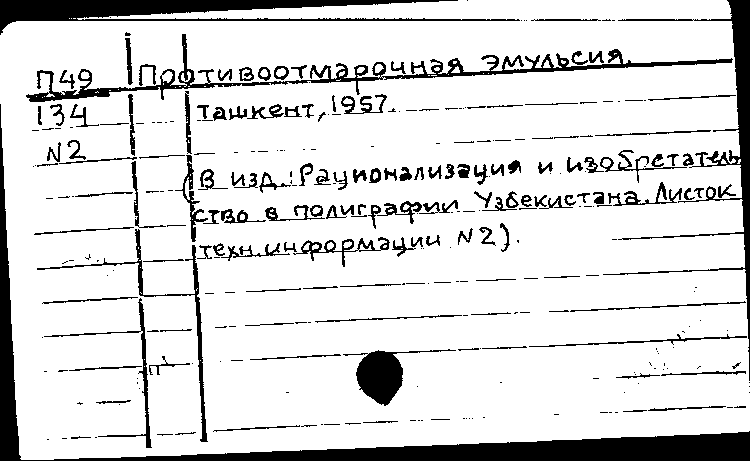 П49 Противоотмарочная эмульсия.
134 Ташкент, 1957.
N2
(В изд.: Рационализация и изобретатель
ство в полиграфии Узбекистана. Листок
техн. информации N2).